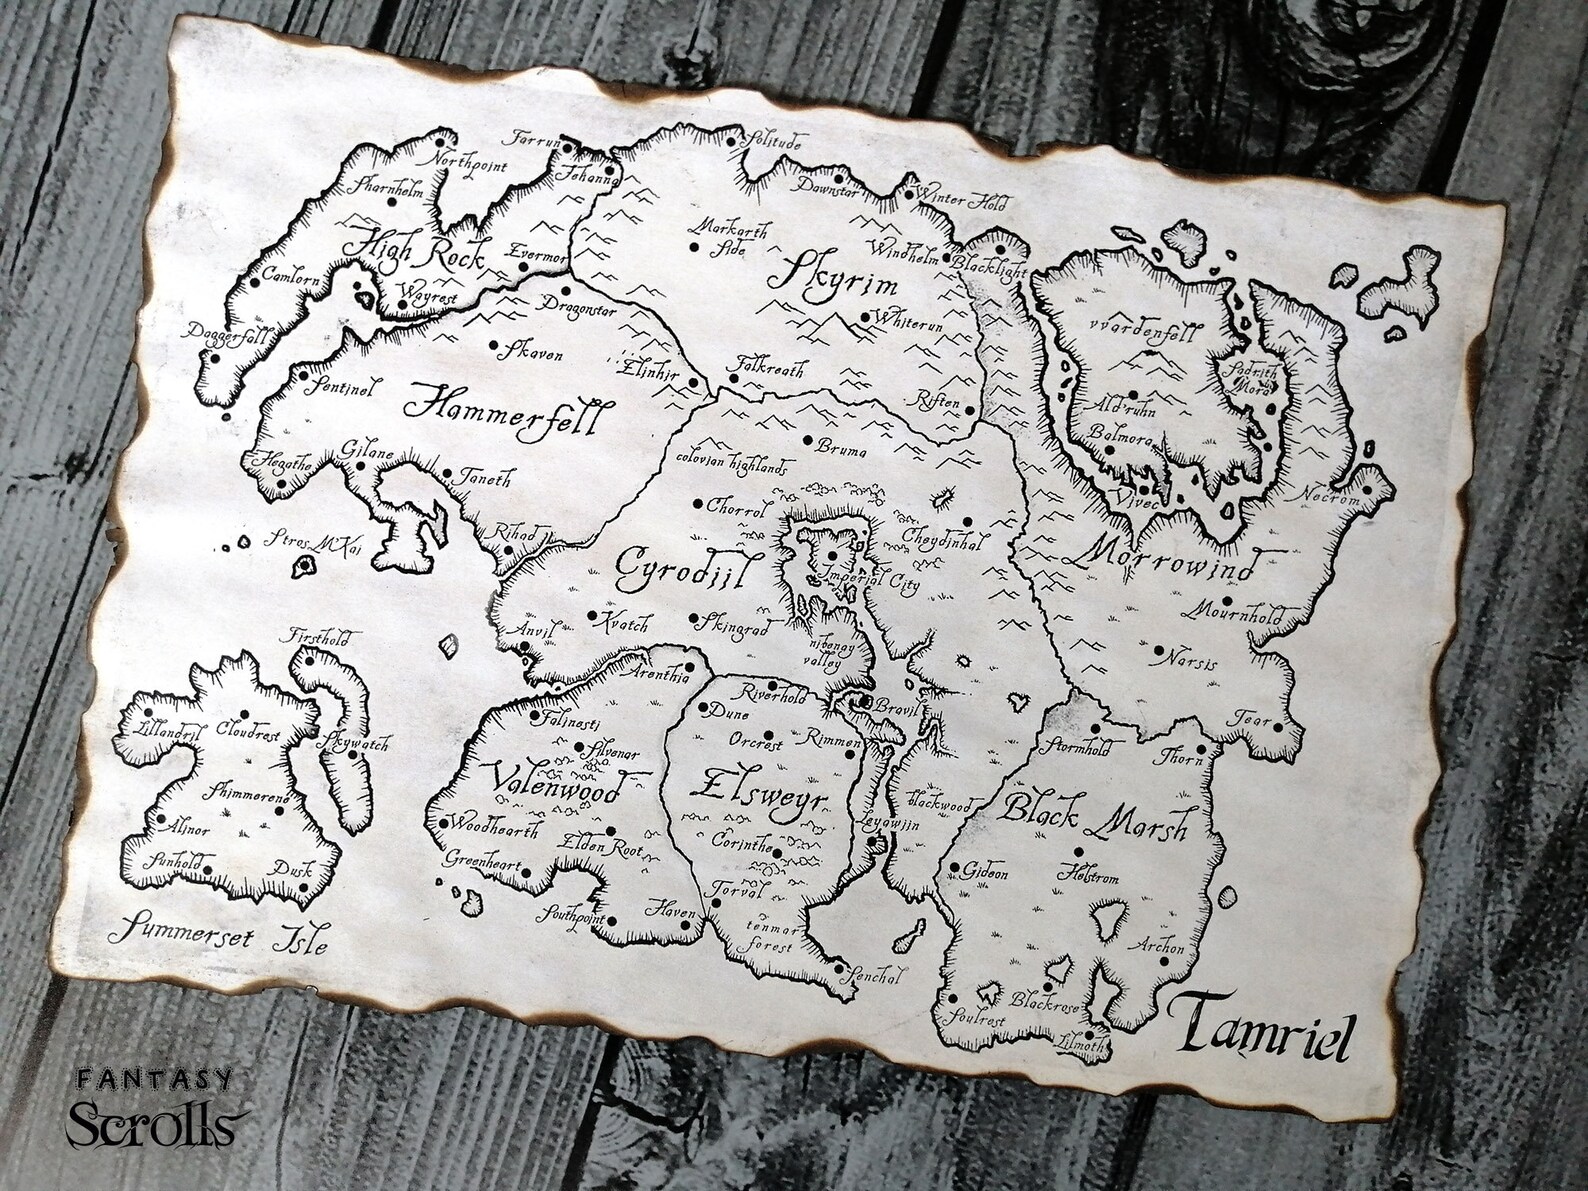 Farrun
Solitude
Northpoint
Jehanna
Dawnstar
Winter Hold
Sharnhelm
Markarth
Side
High Rock
Evermor
Skyrim
Windhelm
Blacklight
Camlorn
Wayrest
Dragonstar
Whiterun
vvardenfell
Daggerfall
Skaven
Elinhir
Falkreath
Sadrith
Mora
Sentinel
Hammerfell
Riften
Ald'ruhn
Balmora
Bruma
Hegathe
Gilane
Taneth
colovian highlands
Vivec
Necrom
Chorrol
Cheydinhal
Stros M'Kai
Rihad
Cyrodiil
Imperial City
Morrowind
Mournhold
Anvil
Kvatch
Skingrad
nibenay
valley
Narsis
Firsthold
Arenthia
Riverhold
Bravil
Lillandril
Cloudrest
Skywatch
Falinesti
Dune
Orcrest
Rimmen
Stormhold
Thorn
Tear
Silvenar
Shimmerene
Valenwood
Elsweyr
blackwood
Black Marsh
Alinor
Woodhearth
Elden Root
Corinthe
Leyawiin
Sunhold
Dusk
Greenheart
Gideon
Helstrom
Southpoint
Haven
Torval
tenmar
forest
Archon
Summerset Isle
Senchal
Soulrest
Blackrose
Lilmoth
Tamriel
FANTASY
Scrolls